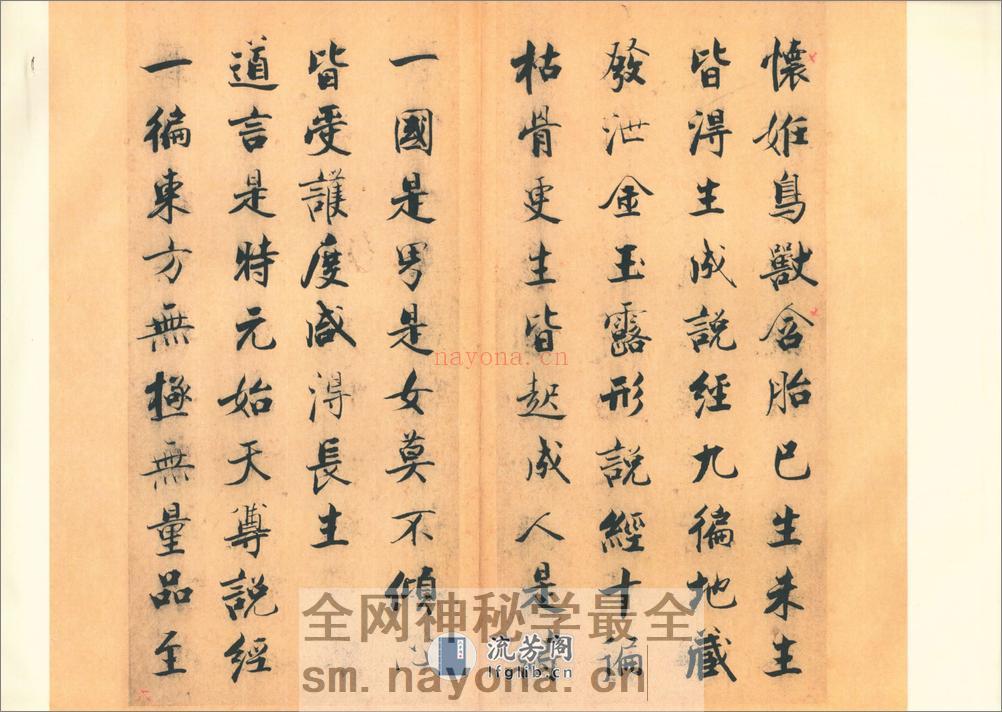 懷姙鳥獸含胎已生未生
皆得生成說經九徧地藏
發泄金玉露形說經十徧
枯骨更生皆起成人是時
一國是男是女莫不傾心
皆受護度咸得長生
道言是時元始天尊說經
一徧東方無極無量品至
nayona.cn
全网神秘学最全
流芳阁
lfglib.cn
sm.nayona.cn